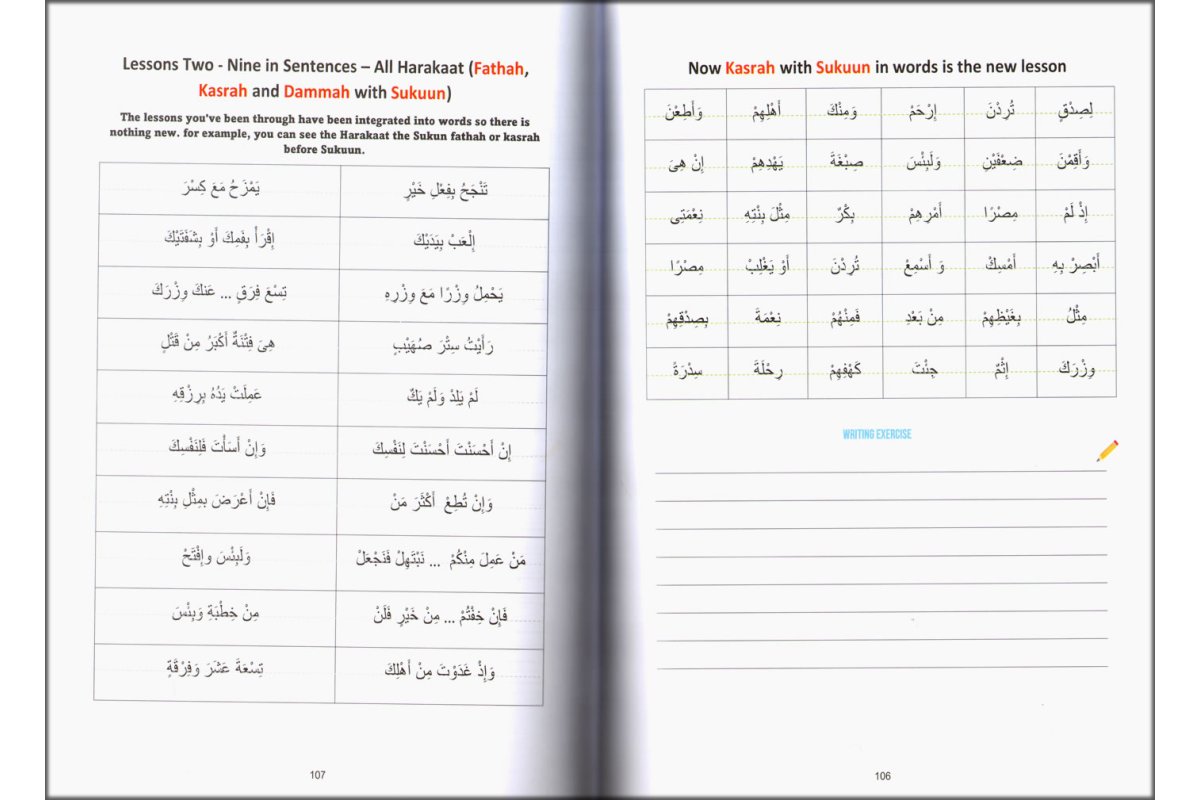 Now Kasrah with Sukuun in words is the new lesson
لِصِدْقٍ تُرِدْنَ إِرْحَمْ وَمِنْكَ أَهْلِهِمْ وَأَطِعْنَ
وَأَقِمْنَ ضِعْفَيْنِ وَلَبِئْسَ صِبْغَةَ يَهْدِهِمْ إِنْ هِىَ
إِذْ لَمْ مِصْرًا أَمْرِهِمْ بِكْرٌ مِثْلَ بِنْتِهِ نِعْمَتِى
أَبْصِرْ بِهِ أَمْسِكْ وَ أَسْمِعْ تُرِدْنَ أَوْ يَغْلِبْ مِصْرًا
مِثْلُ بِغَيْظِهِمْ مِنْ بَعْدِ فَمِنْهُمْ نِعْمَةَ بِصِدْقِهِمْ
وِزْرَكَ إِثْمٌ جِئْتَ كَهْفِهِمْ رِحْلَةَ سِدْرَةً
WRITING EXERCISE
106
Lessons Two - Nine in Sentences – All Harakaat (Fathah,
Kasrah and Dammah with Sukuun)
The lessons you've been through have been integrated into words so there is
nothing new. for example, you can see the Harakaat the Sukun fathah or kasrah
before Sukuun.
تَنْجَحُ بِفِعْلِ خَيْرٍ يَمْزَحُ مَعَ كِسْرَ
إِلْعَبْ بِيَدَيْكَ إِقْرَأْ بِفَمِكَ أَوْ بِشَفَتَيْكَ
يَحْمِلُ وِزْرًا مَعَ وِزْرِهِ تِسْعَ فِرَقٍ ... عَنكَ وِزْرَكَ
رَأَيْتُ سِتْرَ صُهَيْبٍ هِىَ فِتْنَةٌ أَكْبَرُ مِنْ قَتْلٍ
لَمْ يَلِدْ وَلَمْ يَكٌ عَمِلَتْ يَدُهُ بِرِزْقِهِ
إِنْ أَحْسَنْتَ أَحْسَنْتَ لِنَفْسِكَ وَإِنْ أَسَأْتَ فَلِنَفْسِكَ
وَإِنْ تُطِعْ أَكْثَرَ مَنْ فَإِنْ أَعْرَضَ بمِثْلِ بِنْتِهِ
مَنْ عَمِلَ مِنْكُمْ ... نَبْتَهِلْ فَنَجْعَلْ وَلَبِئْسَ وإِفْتَحْ
فَإِنْ خِفْتُمْ ... مِنْ خَيْرٍ فَلَنْ مِنْ خِطْبَةِ وَبِئْسَ
وَإِذْ غَدَوْتَ مِنْ أَهْلِكَ تِسْعَةَ عَشَرَ وَفِرْقَةٍ
107